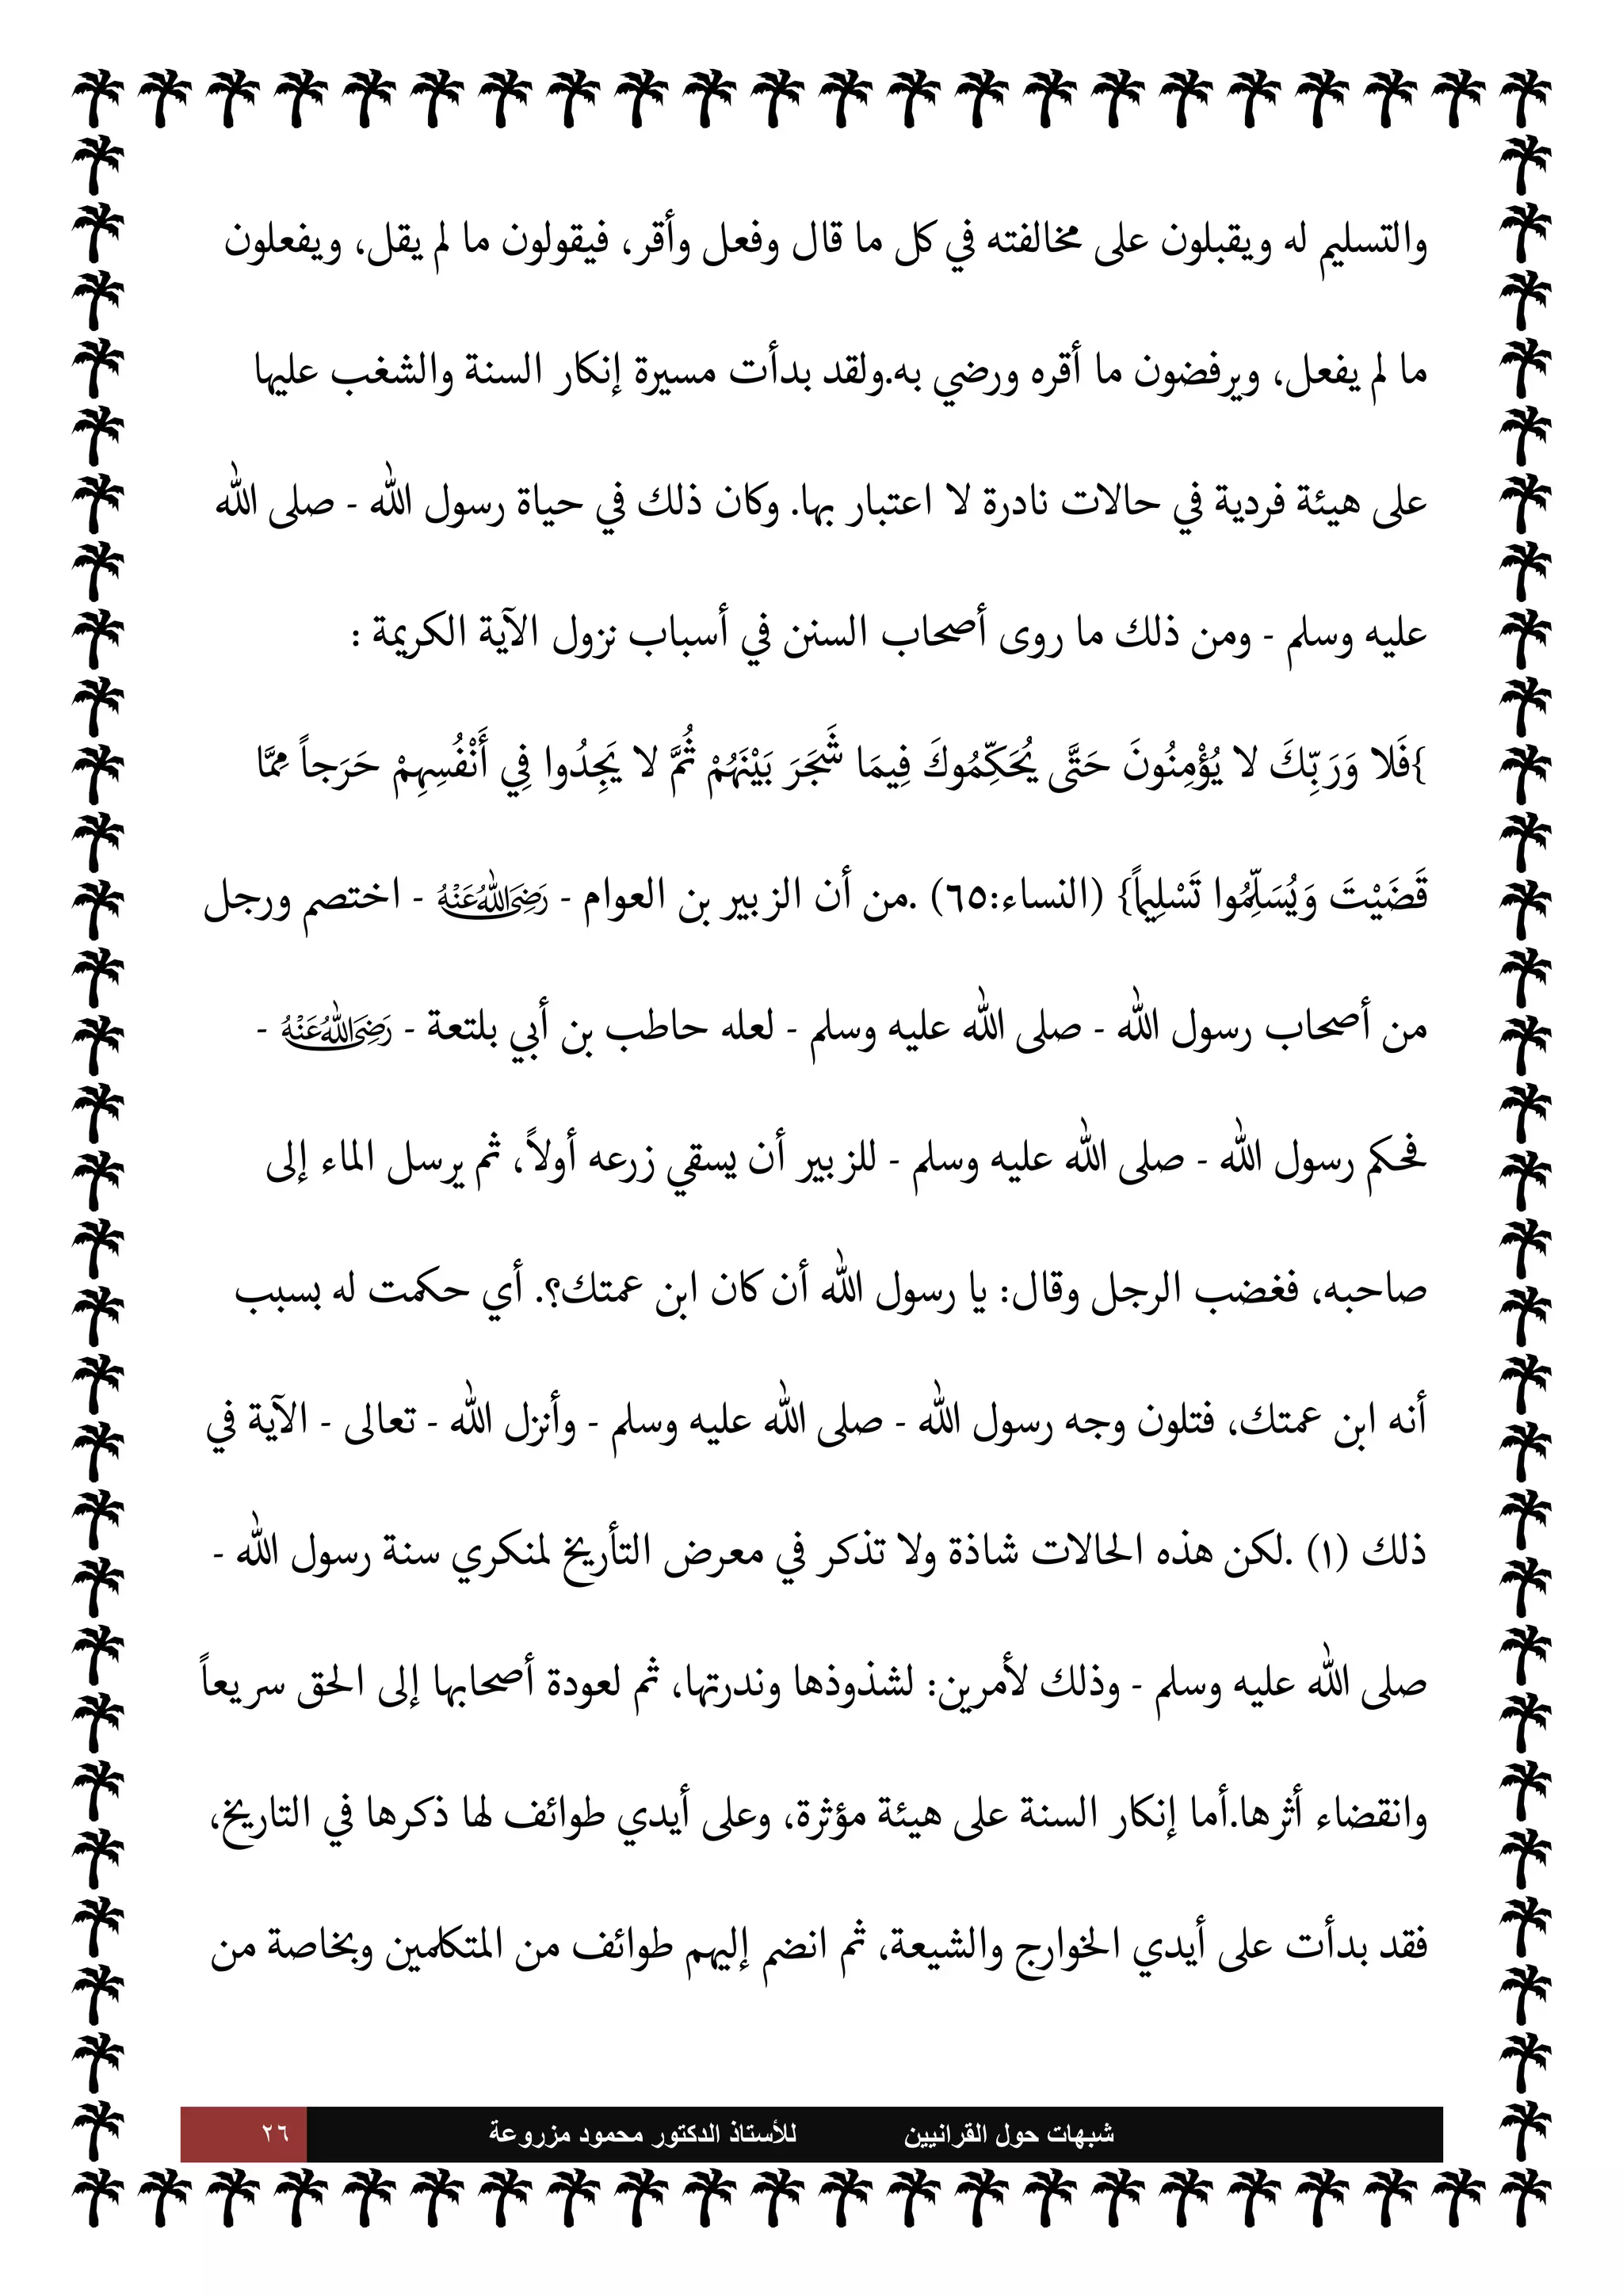 والتسليم له ويقبلون على مخالفته في كل ما قال وفعل وأقر، فيقولون ما لم يقل، ويفعلون
ما لم يفعل، ويرفضون ما أقره ورضي به.ولقد بدأت مسيرة إنكار السنة والشغب عليها
على هيئة فردية في حالات نادرة لا اعتبار بها. وكان ذلك في حياة رسول الله - صلى الله
عليه وسلم - ومن ذلك ما روى أصحاب السنن في أسباب نزول الآية الكريمة :
{فَلا وَرَبِّكَ لا يُؤْمِنُونَ حَتَّى يُحَكِّمُوكَ فِيمَا شَجَرَ بَيْنَهُمْ ثُمَّ لا يَجِدُوا فِي أَنْفُسِهِمْ حَرَجاً مِمَّا
قَضَيْتَ وَيُسَلِّمُوا تَسْلِيماً} (النساء:٦٥) .من أن الزبير بن العوام - رَضِيَ اللهُ عَنْهُ - اختصم ورجل
من أصحاب رسول الله - صلى الله عليه وسلم - لعله حاطب بن أبي بلتعة - رَضِيَ اللهُ عَنْهُ -
فحكم رسول الله - صلى الله عليه وسلم - للزبير أن يسقي زرعه أولاً، ثم يرسل الماء إلى
صاحبه، فغضب الرجل وقال: يا رسول الله أن كان ابن عمتك؟. أي حكمت له بسبب
أنه ابن عمتك، فتلون وجه رسول الله - صلى الله عليه وسلم - وأنزل الله - تعالى - الآية في
ذلك (١) .لكن هذه الحالات شاذة ولا تذكر في معرض التأريخ لمنكري سنة رسول الله -
صلى الله عليه وسلم - وذلك لأمرين: لشذوذها وندرتها، ثم لعودة أصحابها إلى الحق سريعاً
وانقضاء أثرها.أما إنكار السنة على هيئة مؤثرة، وعلى أيدي طوائف لها ذكرها في التاريخ،
فقد بدأت على أيدي الخوارج والشيعة، ثم انضم إليهم طوائف من المتكلمين وبخاصة من
شبهات حول القرانيين للأستاذ الدكتور محمود مزروعة ٢٦